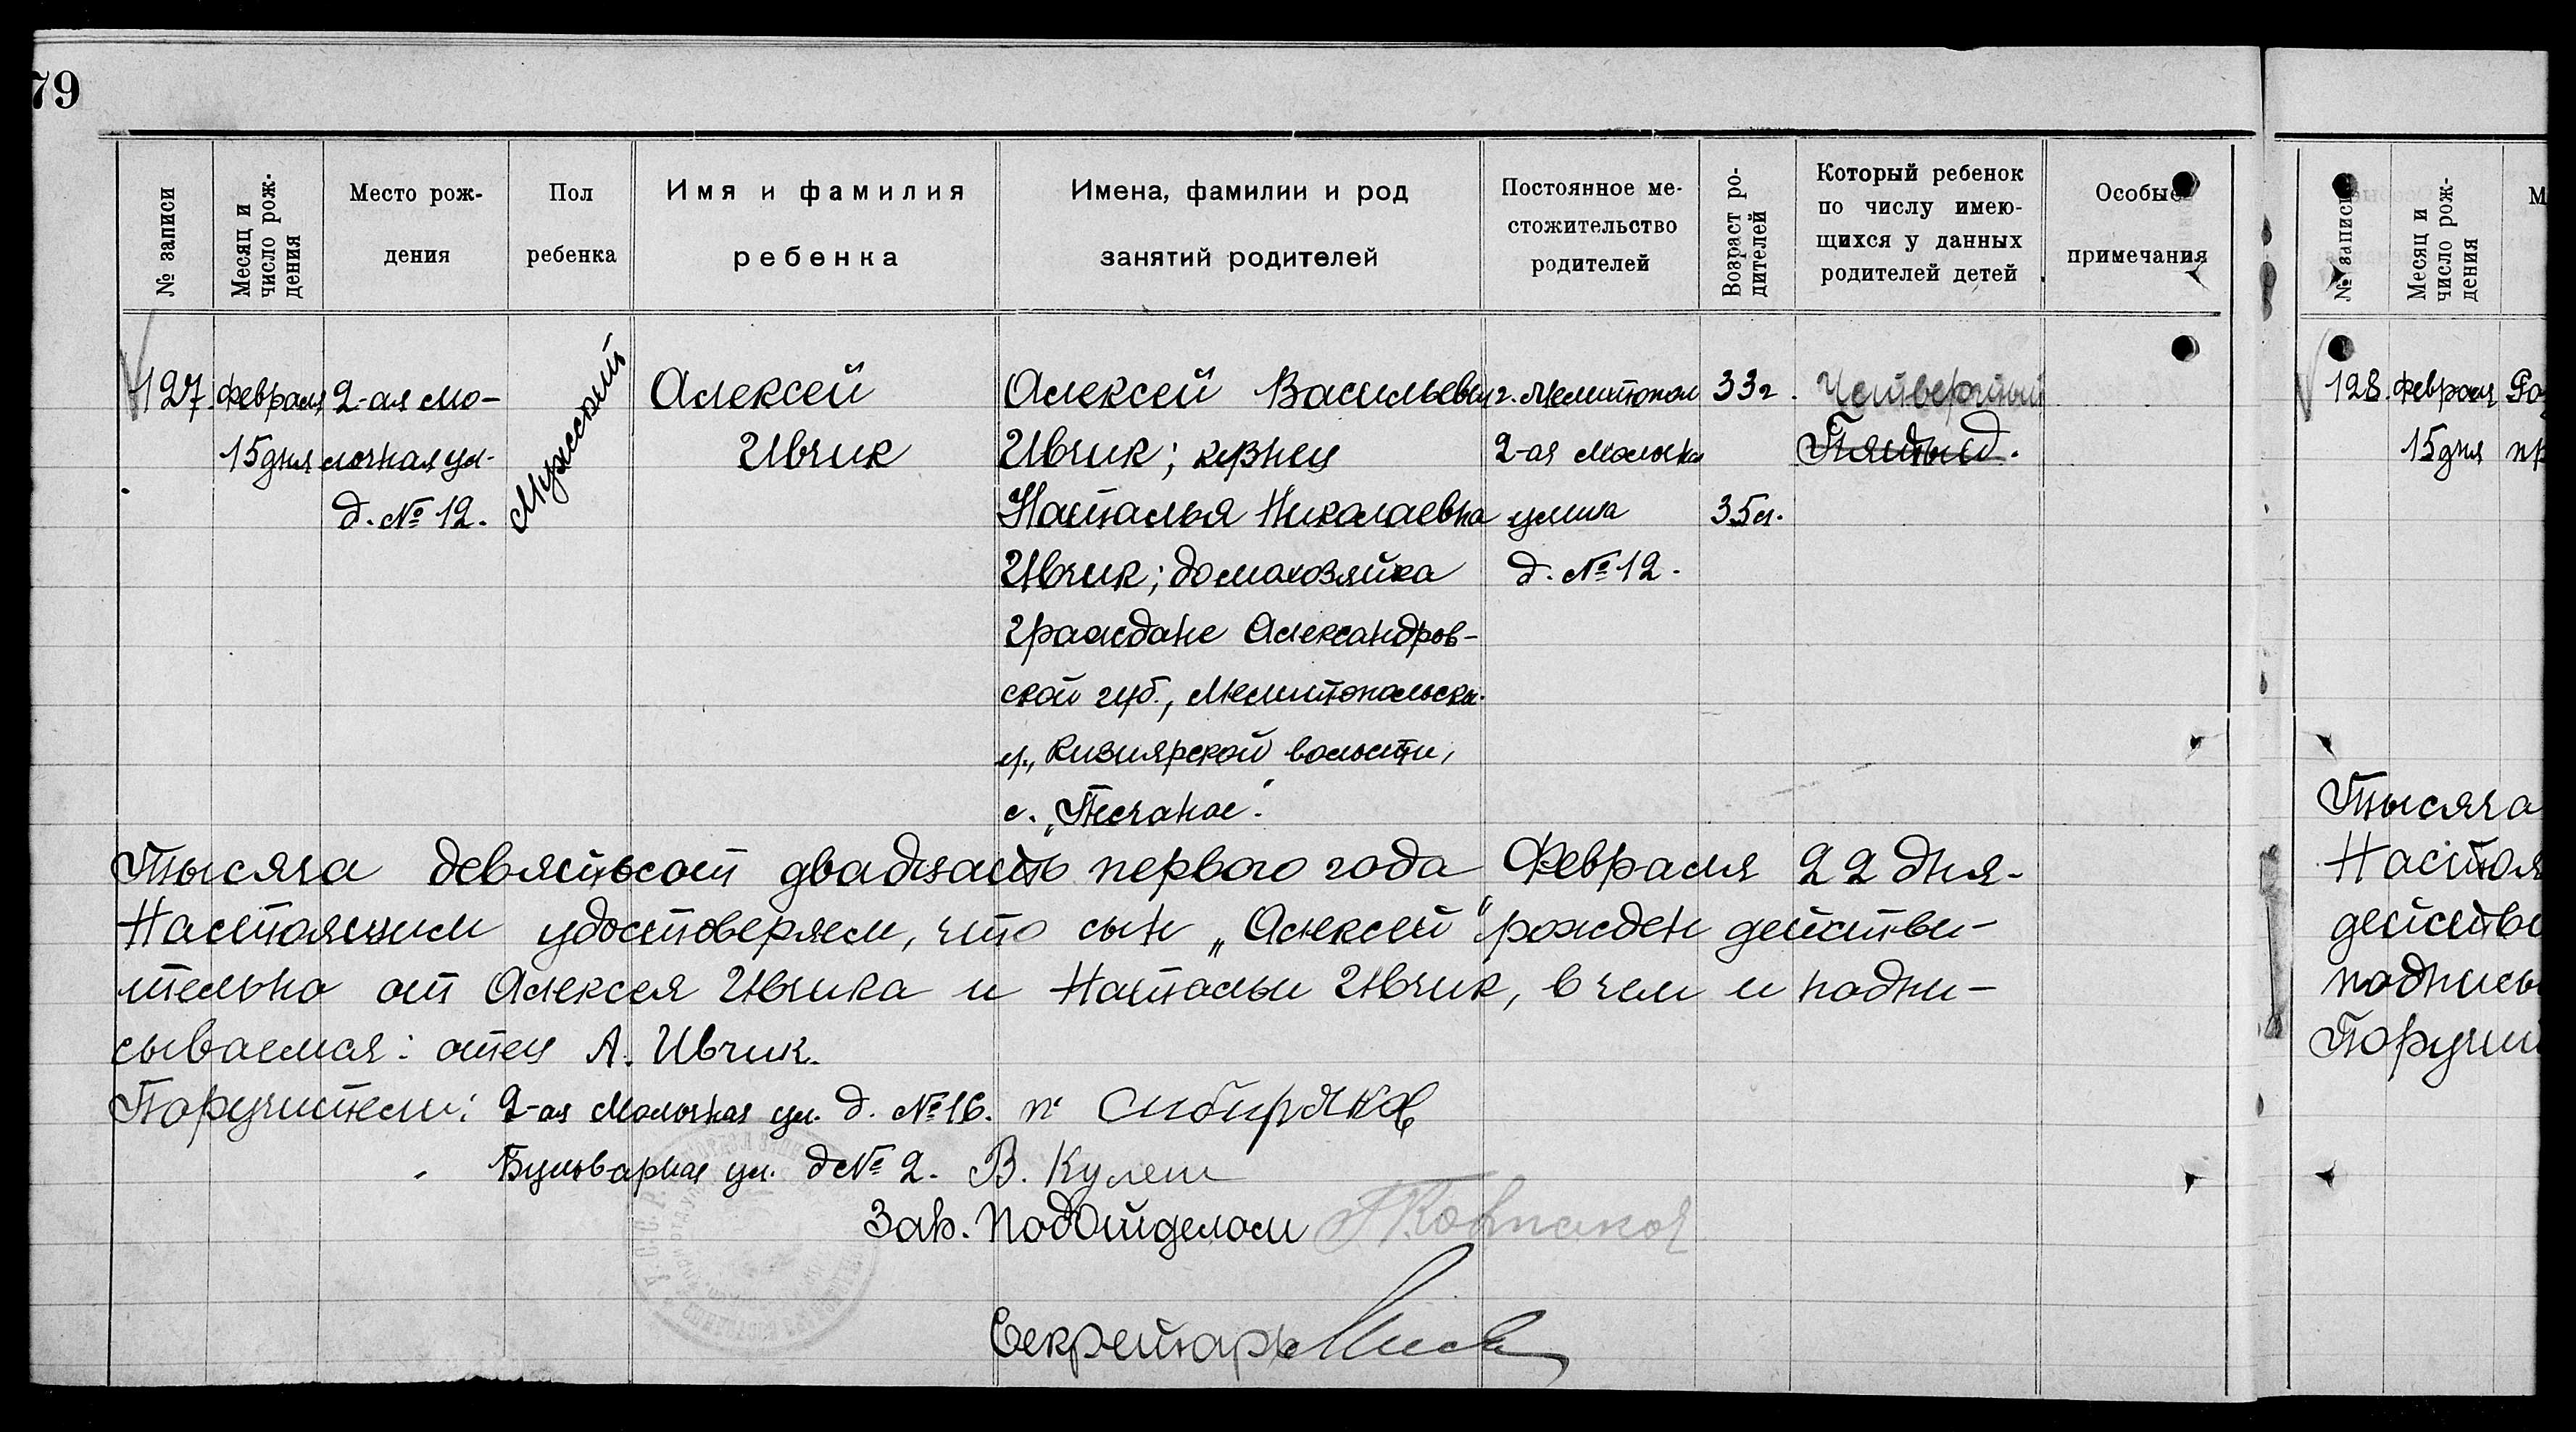 79
№ записи
Месяц и число рождения
Место рождения
Пол ребенка
Имя и фамилия ребенка
Имена, фамилии и род занятий родителей
Постоянное местожительство родителей
Возраст родителей
Который ребенок по числу имеющихся у данных родителей детей
Особые примечания
127. Февраля 2-ая Мо- Мужской Алексей Алексей Васильевич г. Мелитополь 33 г. Четвертый
15 дня лочная ул. Ивчик Ивчик; кузнец 2-ая Молочная Пятый.
д. № 12. Наталья Николаевна улица 35 л.
Ивчик; домохозяйка д. № 12.
Граждане Александров-
ской губ., Мелитопольск.
у., Кизиярской волости,
с. „Песчаное".
Тысяча девятьсот двадцать первого года Февраля 22 дня.
Настоящим удостоверяем, что сын „Алексей" рожден действи-
тельно от Алексея Ивчика и Натальи Ивчик, в чем и подпи-
сываемся: отец А. Ивчик.
Поручители: 2-ая Молочная ул. д. № 16. п. Сибиряков
Бульварная ул. д № 2. В. Кулеш
Зав. Подотделом
Секретарь
№ записи
Месяц и число рождения
М
128. Февраля
15 дня
Тысяча
Настоя
действи
подписы
Поручи